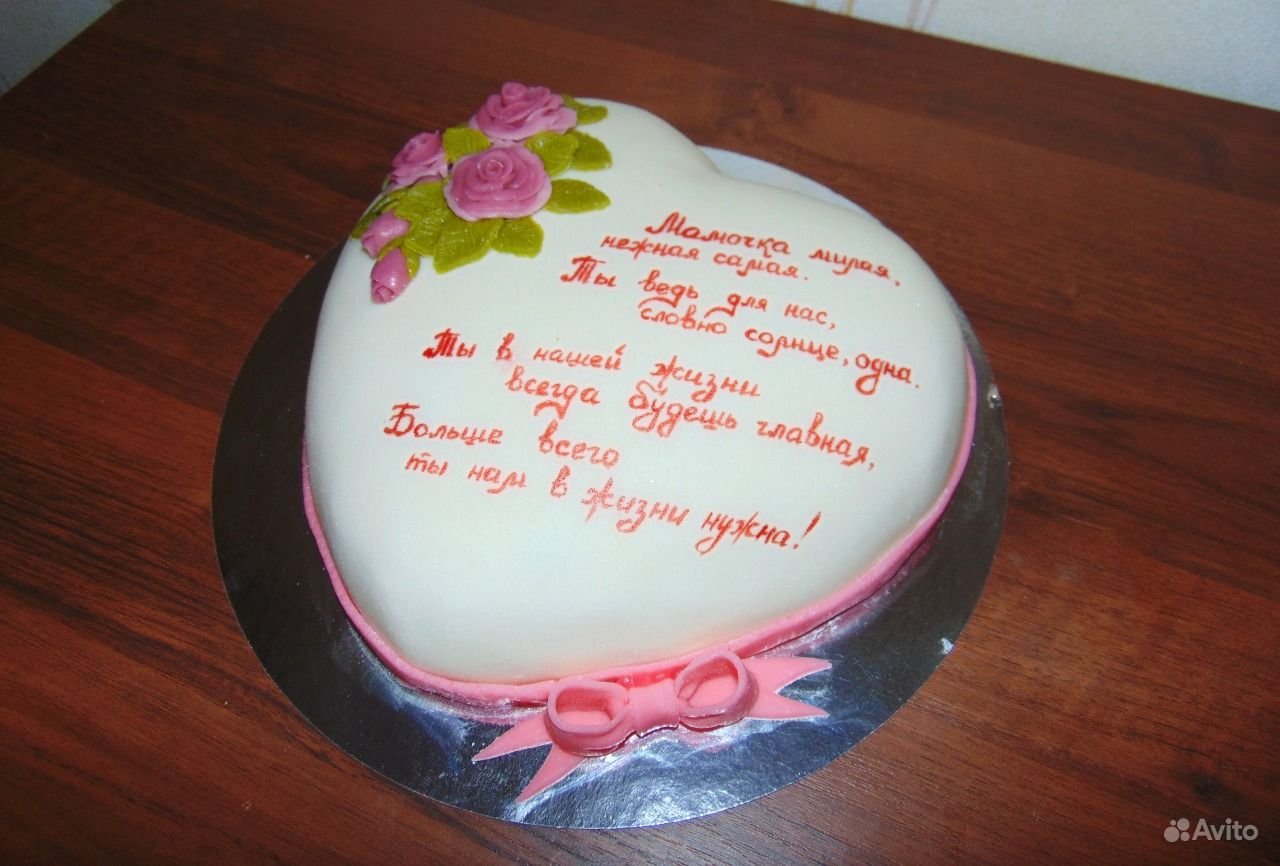 Мамочка милая,
нежная самая.
Ты ведь для нас,
словно солнце, одна.
Ты в нашей жизни
всегда будешь главная,
Больше всего
ты нам в жизни нужна!
Avito